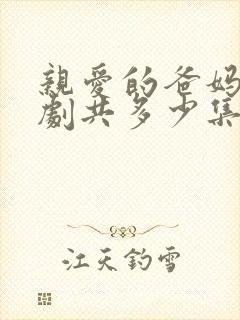 親愛的爸妈
劇共多少集
江天釣雪